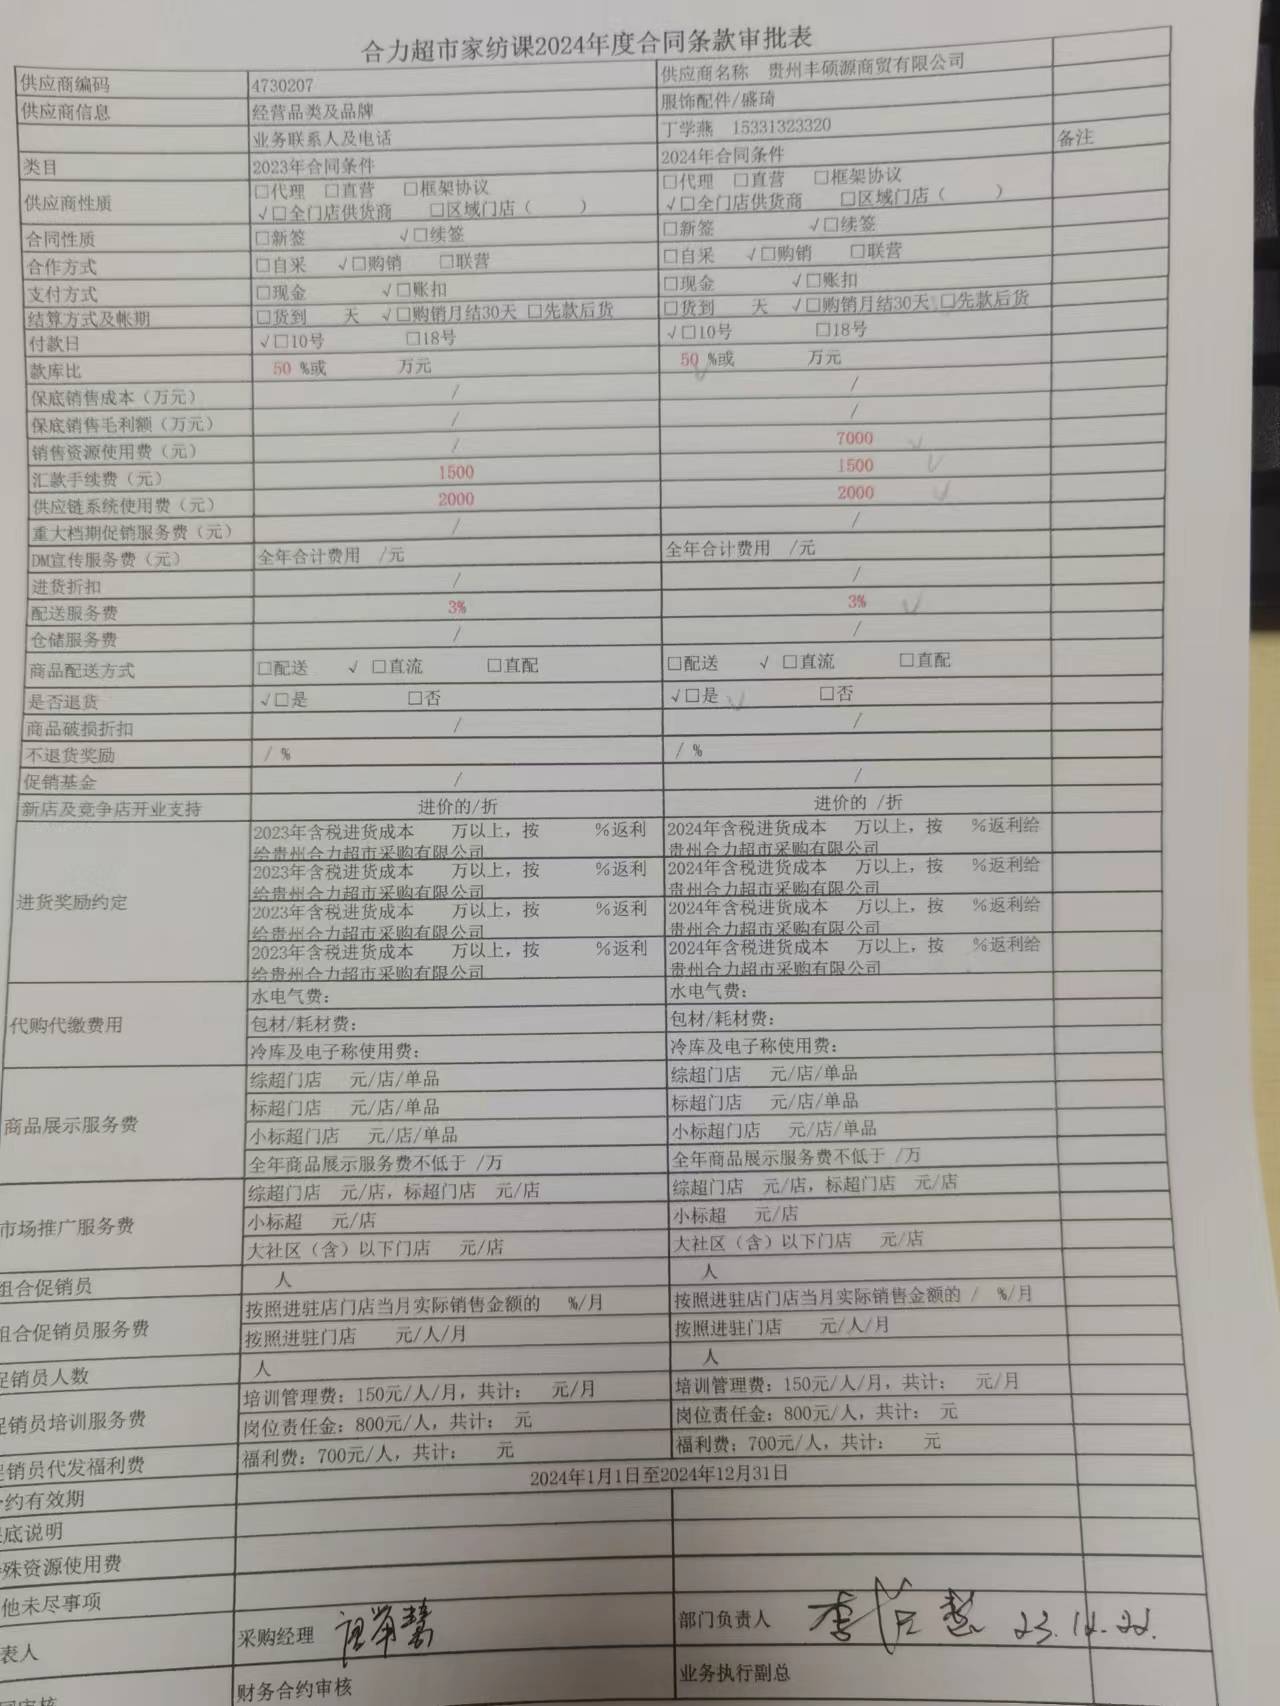 合力超市家纺课2024年度合同条款审批表
供应商编码 4730207 供应商名称 贵州丰硕源商贸有限公司
供应商信息 经营品类及品牌 服饰配件/盛琦
业务联系人及电话 丁学燕 15331323320
类目 2023年合同条件 2024年合同条件 备注
供应商性质 □代理 □直营 □框架协议 □代理 □直营 □框架协议
√□全门店供货商 □区域门店（ ） √□全门店供货商 □区域门店（ ）
合同性质 □新签 √□续签 □新签 √□续签
合作方式 □自采 √□购销 □联营 □自采 √□购销 □联营
支付方式 □现金 √□账扣 □现金 √□账扣
结算方式及帐期 □货到 天 √□购销月结30天 □先款后货 □货到 天 √□购销月结30天 □先款后货
付款日 √□10号 □18号 √□10号 □18号
款库比 50 %或 万元 50 %或 万元
保底销售成本（万元） / /
保底销售毛利额（万元） / /
销售资源使用费（元） / 7000
汇款手续费（元） 1500 1500
供应链系统使用费（元） 2000 2000
重大档期促销服务费（元） / /
DM宣传服务费（元） 全年合计费用 /元 全年合计费用 /元
进货折扣 / /
配送服务费 3% 3%
仓储服务费 / /
商品配送方式 □配送 √ □直流 □直配 □配送 √ □直流 □直配
是否退货 √□是 □否 √□是 □否
商品破损折扣 / /
不退货奖励 / % / %
促销基金 / /
新店及竞争店开业支持 进价的/折 进价的 /折
进货奖励约定 2023年含税进货成本 万以上，按 %返利 2024年含税进货成本 万以上，按 %返利给
给贵州合力超市采购有限公司 贵州合力超市采购有限公司
2023年含税进货成本 万以上，按 %返利 2024年含税进货成本 万以上，按 %返利给
给贵州合力超市采购有限公司 贵州合力超市采购有限公司
2023年含税进货成本 万以上，按 %返利 2024年含税进货成本 万以上，按 %返利给
给贵州合力超市采购有限公司 贵州合力超市采购有限公司
2023年含税进货成本 万以上，按 %返利 2024年含税进货成本 万以上，按 %返利给
给贵州合力超市采购有限公司 贵州合力超市采购有限公司
代购代缴费用 水电气费： 水电气费：
包材/耗材费： 包材/耗材费：
冷库及电子称使用费： 冷库及电子称使用费：
商品展示服务费 综超门店 元/店/单品 综超门店 元/店/单品
标超门店 元/店/单品 标超门店 元/店/单品
小标超门店 元/店/单品 小标超门店 元/店/单品
全年商品展示服务费不低于 /万 全年商品展示服务费不低于 /万
市场推广服务费 综超门店 元/店，标超门店 元/店 综超门店 元/店，标超门店 元/店
小标超 元/店 小标超 元/店
大社区（含）以下门店 元/店 大社区（含）以下门店 元/店
组合促销员 人 人
组合促销员服务费 按照进驻店门店当月实际销售金额的 %/月 按照进驻店门店当月实际销售金额的 / %/月
按照进驻门店 元/人/月 按照进驻门店 元/人/月
促销员人数 人 人
促销员培训服务费 培训管理费：150元/人/月，共计： 元/月 培训管理费：150元/人/月，共计： 元/月
岗位责任金：800元/人，共计： 元 岗位责任金：800元/人，共计： 元
促销员代发福利费 福利费：700元/人，共计： 元 福利费：700元/人，共计： 元
约有效期 2024年1月1日至2024年12月31日
底说明
殊资源使用费
他未尽事项
表人 采购经理 部门负责人 23.12.22.
审核 财务合约审核 业务执行副总